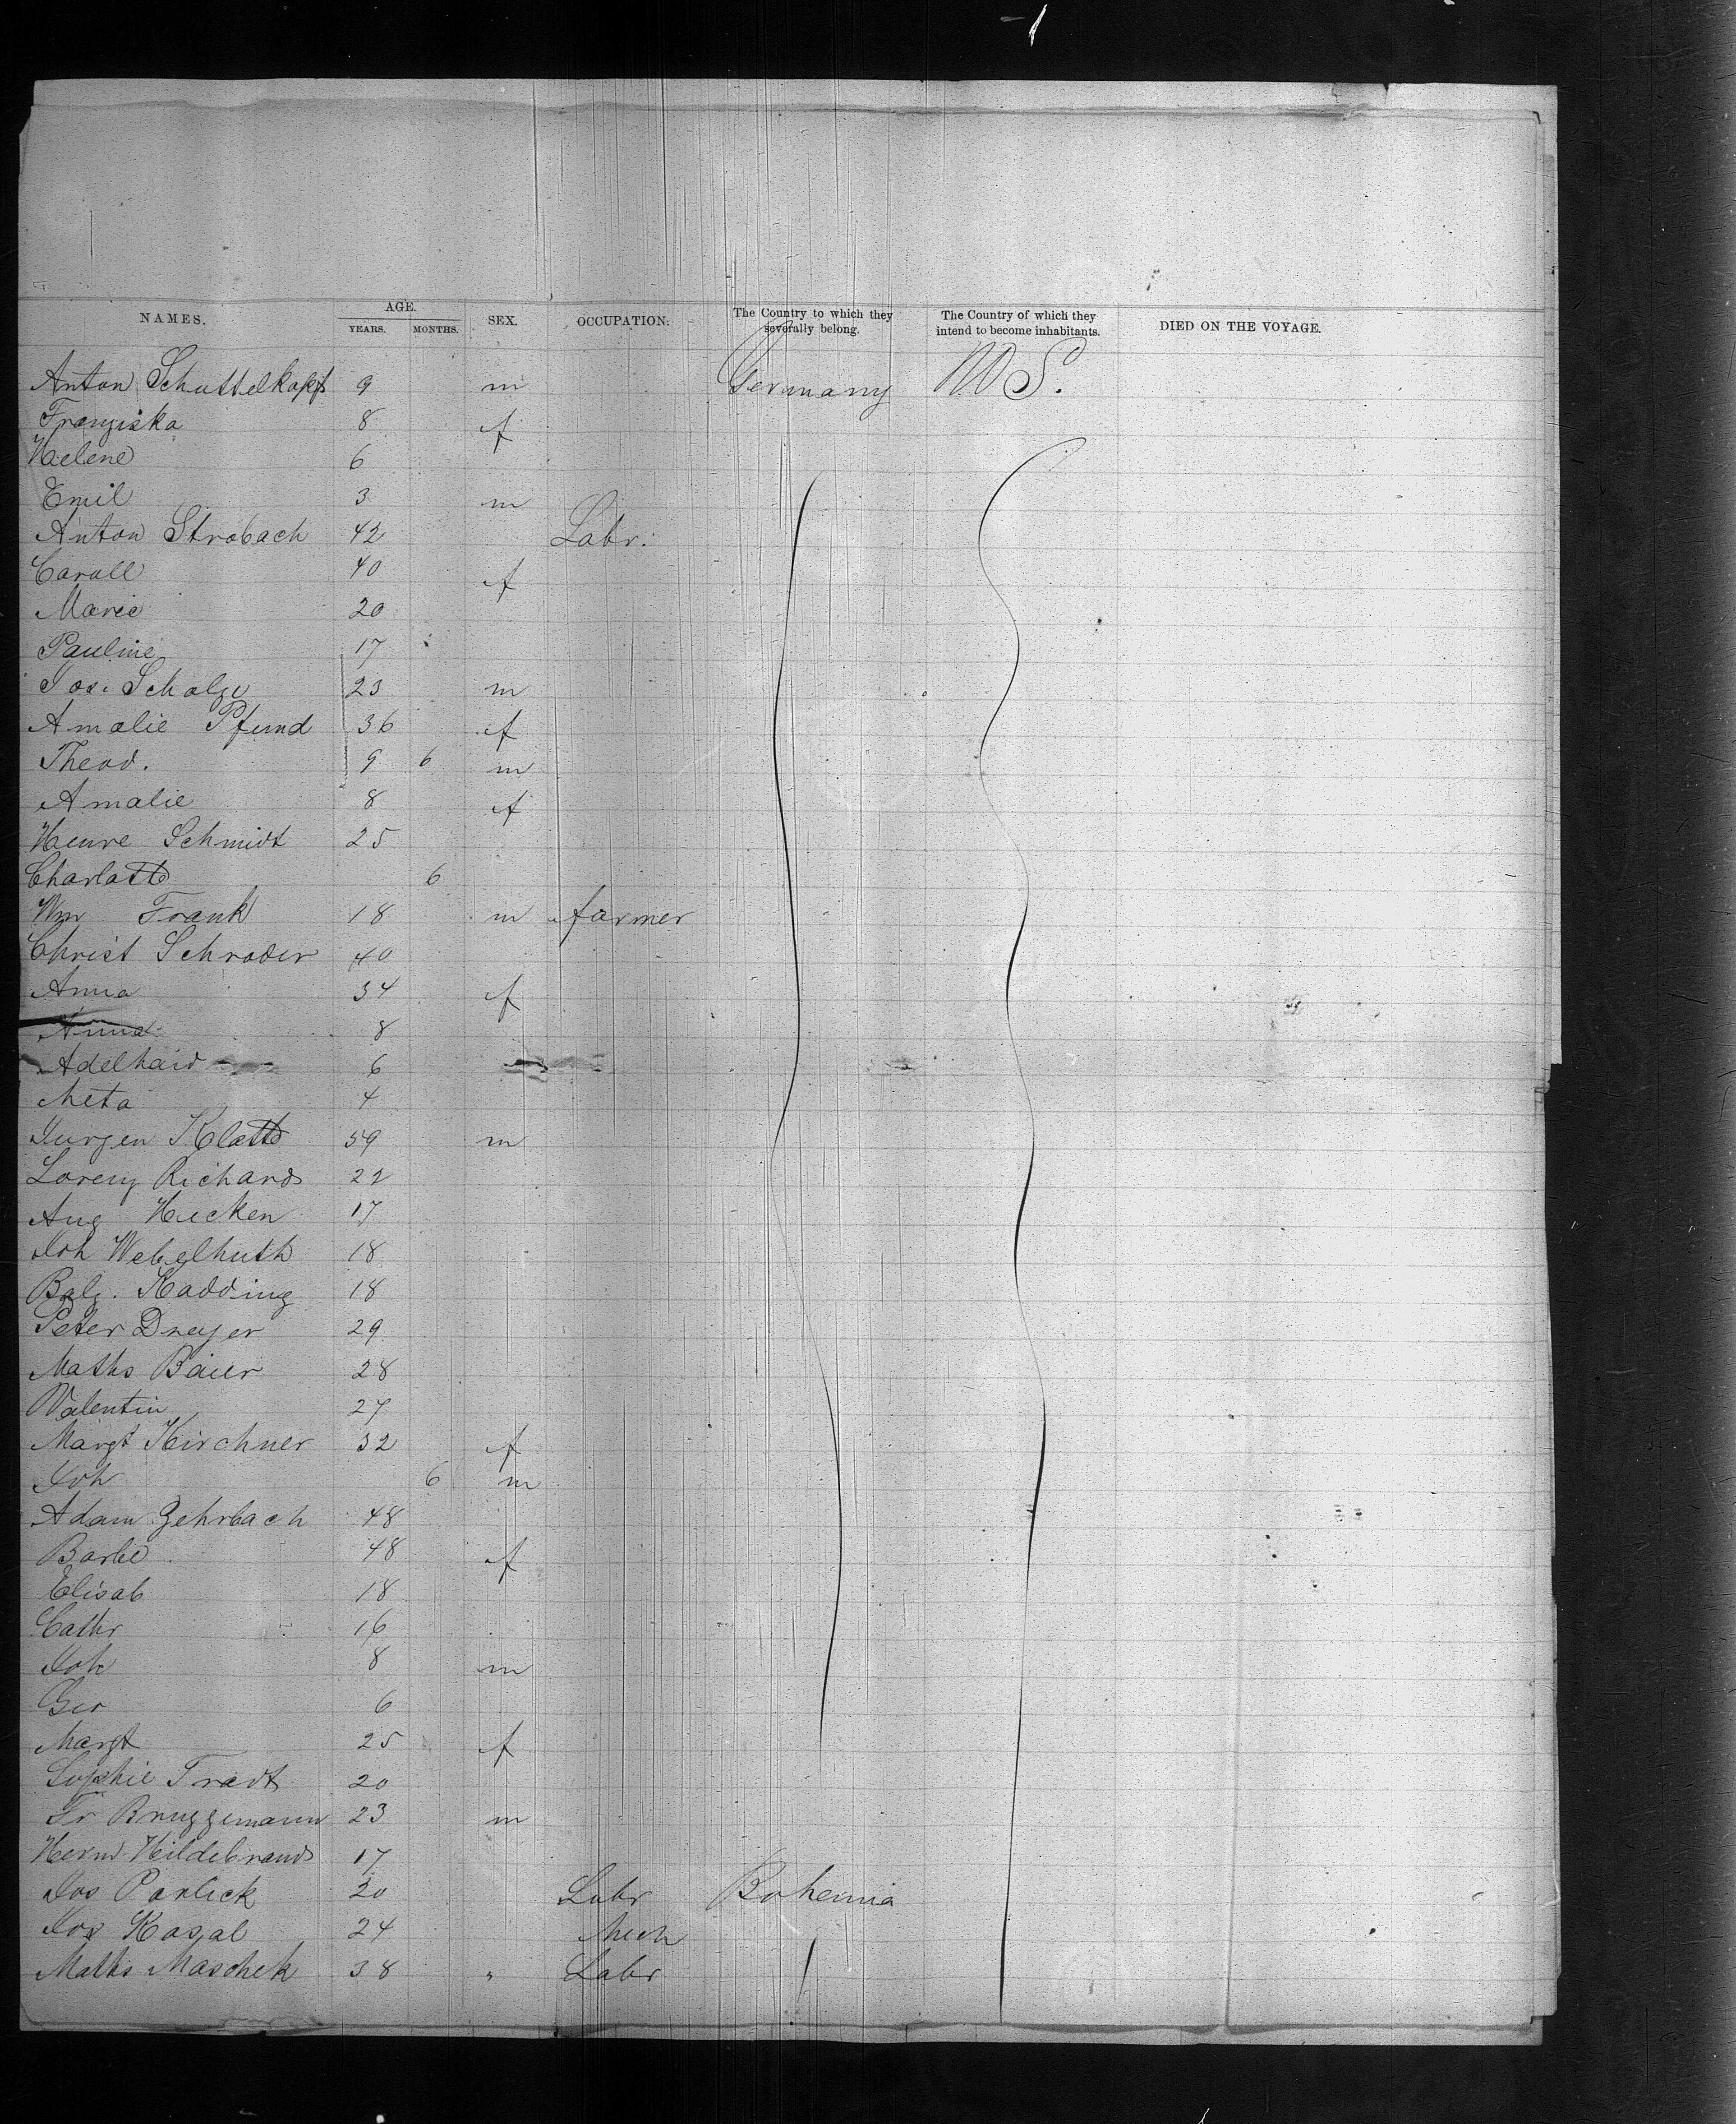 NAMES. AGE. YEARS. MONTHS. SEX. OCCUPATION. The Country to which they severally belong. The Country of which they intend to become inhabitants. DIED ON THE VOYAGE.
Anton Schuttelkopf 9 m Germany U.S.
Franziska 8 f
Helene 6
Emil 3 m
Anton Strobach 42 Labr.
Caroll 40 f
Marie 20
Pauline 17
Jos. Scholze 23 m
Amalie Pfund 36 f
Theod. 9 6 m
Amalie 8 f
Schmidt 25
Charlotte 6
Wm Frank 18 m farmer
Christ Schroder 40
Anna 34 f
Anna 8
Adelhaid 6
Meta 4
Jurgen Klatte 59 m
Lorenz Richards 22
Aug Hecken 17
Joh Webelhuth 18
Balz. Kadding 18
Peter Dreyer 29
Maths Baier 28
Valentin 27
Margt Kirchner 32 f
Joh 6 m
Adam Gehrbach 48
Barbe 48 f
Elisab 18
Cathr 16
Joh 8 m
Geo 6
Margt 25 f
Sophie Tradt 20
Fr Bruggemann 23 m
Herm Hildebrand 17
Jos Pavlick 20 Labr Bohemia
Jos Kasal 24 Mech
Maths Maschek 38 " Labr